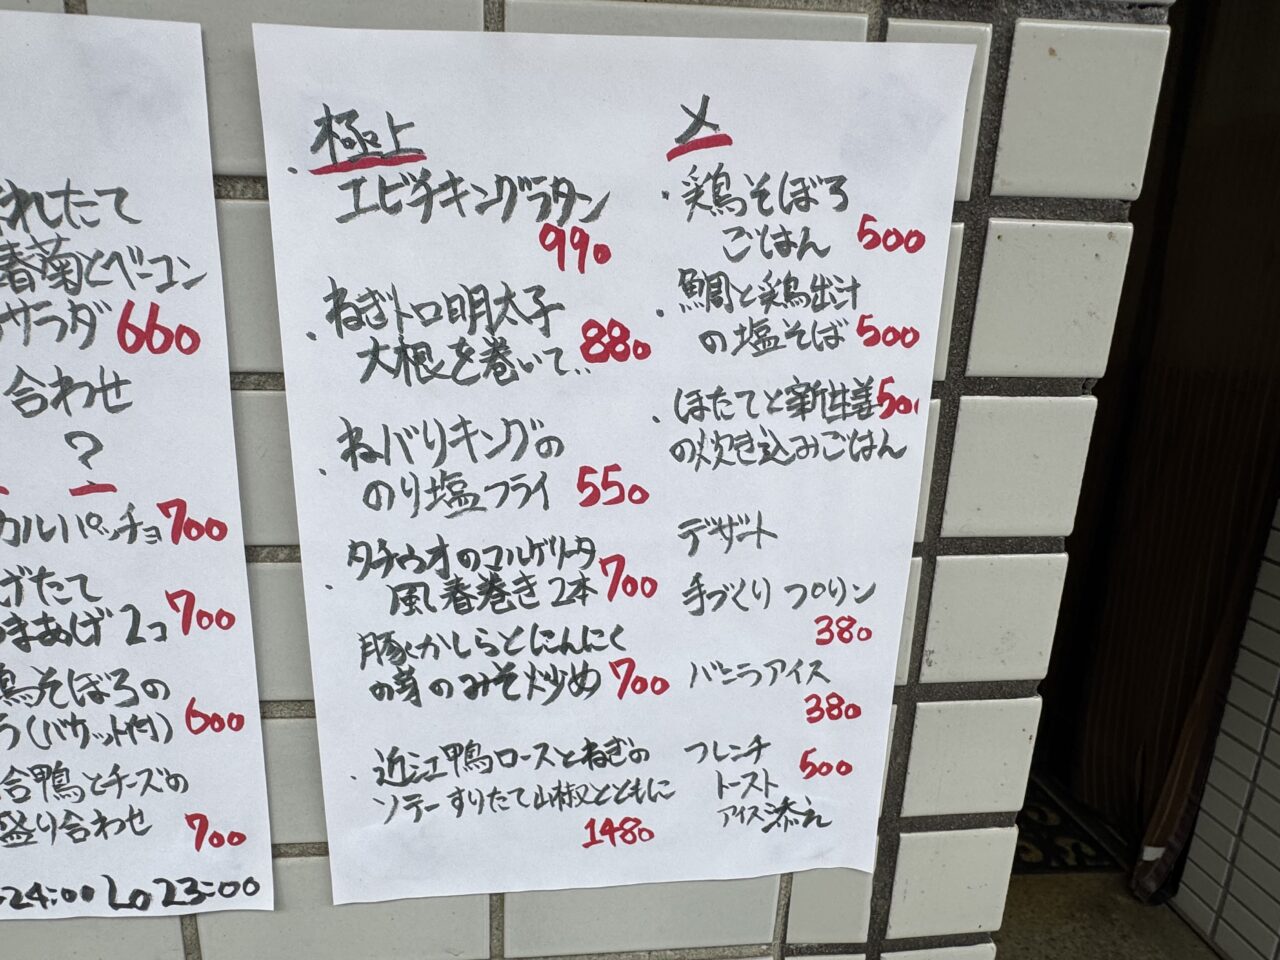 れたて
春菊とベーコン
サラダ 660
合わせ
?
カルパッチョ 700
げたて
まあげ 2コ 700
鶏そぼろの
(バケット付) 600
合鴨とチーズの
盛り合わせ 700
24:00 Lo 23:00
極上
・エビチキングラタン
990
・ねぎトロ明太子
大根を巻いて.. 880
・ねバりキングの
のり塩フライ 550
・タチウオのコルゲリータ
風春巻き2本 700
豚かしらとにんにく
の芽のみそ炒め 700
・近江鴨ロースとねぎの
ソテーすりたて山椒とともに
1480
〆
・彩鶏そぼろ
ごはん 500
・鯛と彩鶏出汁
の塩そば 500
・ほたてと新生姜 500
の炊き込みごはん
デザート
手づくりプリン
380
バニラアイス
380
フレンチ
トースト 500
アイス添え